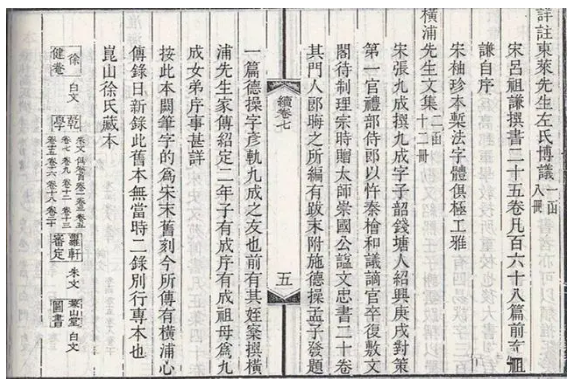 詳註東萊先生左氏博議 一函八冊
宋呂祖謙撰書二十五卷凡百六十八篇前有祖
謙自序
宋袖珍本槧法字體俱極工雅
橫浦先生文集 二函十二冊
宋張九成撰九成字子韶錢塘人紹興庚戌對策
第一官禮部侍郎以忤秦檜和議謫官卒復敷文
閣待制理宗時贈太師崇國公諡文忠書二十卷
其門人郎晦之所編有跋末附施德操孟子發題
續卷七
五
一篇德操字彥軌九成之友也前有其姪案撰橫
浦先生家傳紹定二年子有成序有成祖母為九
成女弟序事甚詳
按此本闕筆字的為宋末舊刻今所傳有橫浦心
傳錄日新錄此舊本無當時二錄別行專本也
崑山徐氏藏本
徐健菴 白文 乾學 朱文 軒審定 朱文 山堂圖書 白文